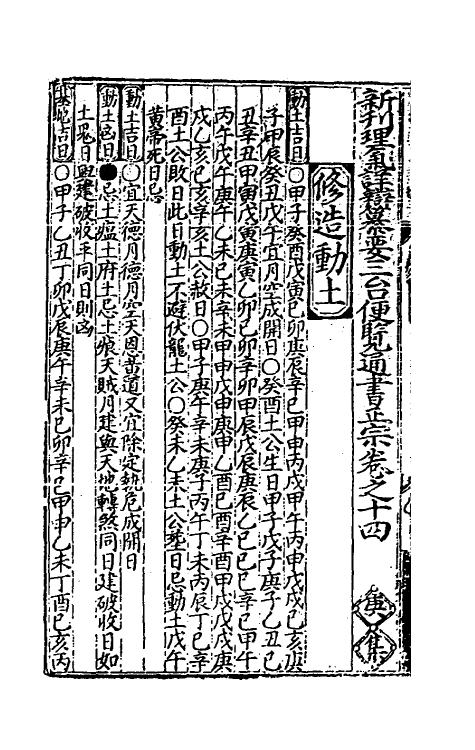 新刋理氣詳辯纂要三台便覽通書正宗卷之十四 寅集
修造動土
動土吉日○甲子癸酉戊寅己卯庚辰辛巳甲申丙戌甲午丙申戊戌己亥庚
子甲辰癸丑戊午宜月空成開日○癸酉土公生日甲子戊子庚子乙丑己
丑辛丑甲寅戊寅庚寅乙卯己卯辛卯甲辰戊辰庚辰乙巳己巳辛巳甲午
丙午戊午庚午乙未己未辛未甲申戊申庚申乙酉己酉辛酉甲戌戊戌庚
戌乙亥己亥辛亥土公赦日○甲子庚午辛未庚子丙午丁未丙辰丁巳辛
酉土公敗日此日動土不避伏龍土公○癸未乙未土公塟日忌動土戊午
黄帝死日忌
動土吉日○宜天德月德月空天恩黄道又宜除定執危成開日
動土凶日●忌土瘟土府土忌土痕天賊月建與天地轉煞同日建破收日如
土鬼日與建破收平同日則凶
基地吉日○甲子乙丑丁卯戊辰庚午辛未己卯辛巳甲申乙未丁酉己亥丙